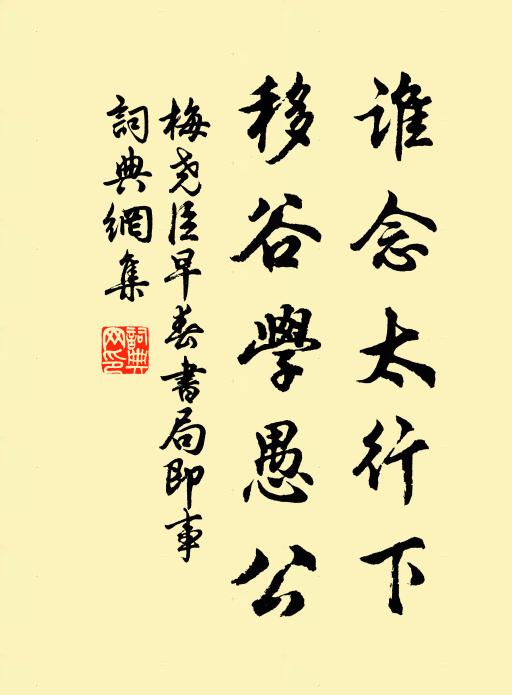 谁念太行下
移谷學愚公
梅尧臣早春書局即事
詞典網集
詞典网印